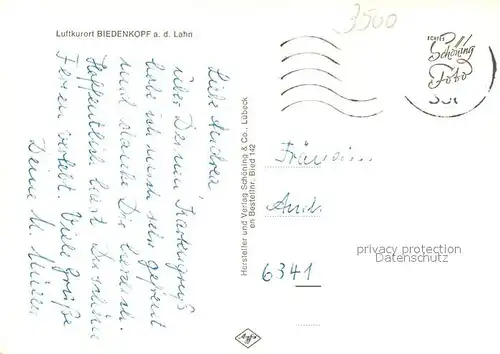 3500
Luftkurort BIEDENKOPF a. d. Lahn
ECHTES
Schöning
Foto
Liebe Andrea,
über Deinen Kartengruß
habe ich mich sehr gefreut
und danke Dir herzlich.
Hoffentlich hast Du schöne
Ferien verlebt. Viele Grüße
Deine M.
Hersteller und Verlag Schöning & Co., Lübeck
en Bestellnr. Bied 142
Fräulein
6341
privacy protection
Datenschutz
Agfa